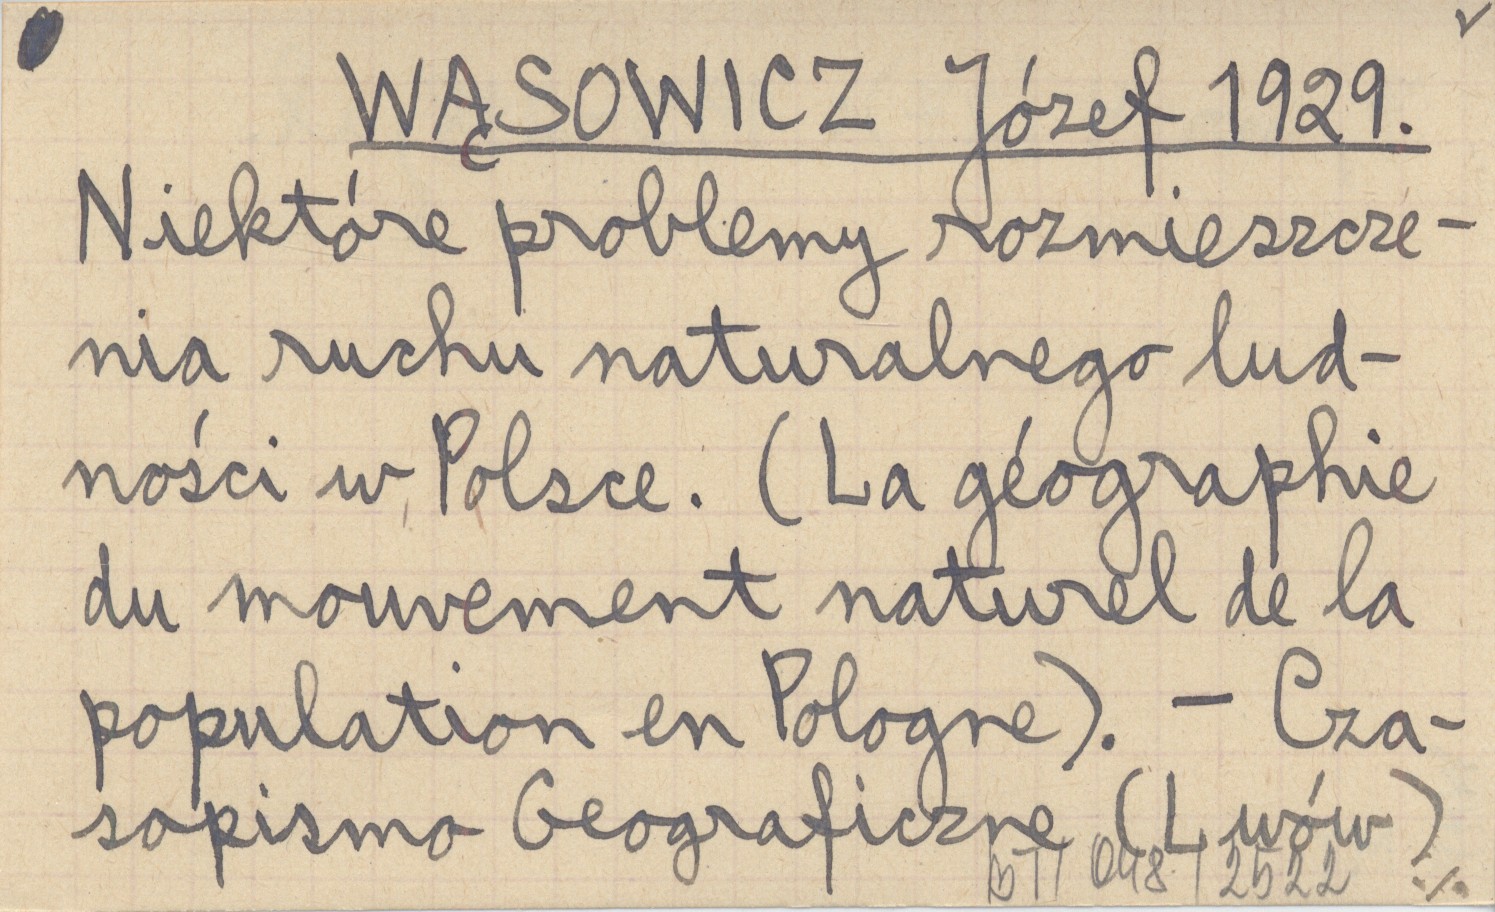 WĄSOWICZ Józef 1929.
Niektóre problemy rozmieszcze-
nia ruchu naturalnego lud-
ności w Polsce. (La géographie
du mouvement naturel de la
population en Pologne). - Cza-
sopismo Geograficzne (Lwów)
048 | 2522 ./.